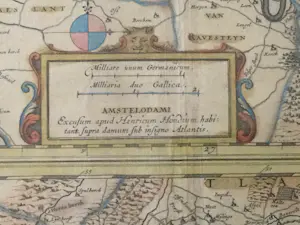 VAN
RAVESTEYN
Milliare unum Germanicum.
Milliaria duo Gallica.
AMSTELODAMI
Excusum apud Henricum Hondium habi
tant. supra damum sub insigno Atlantis.